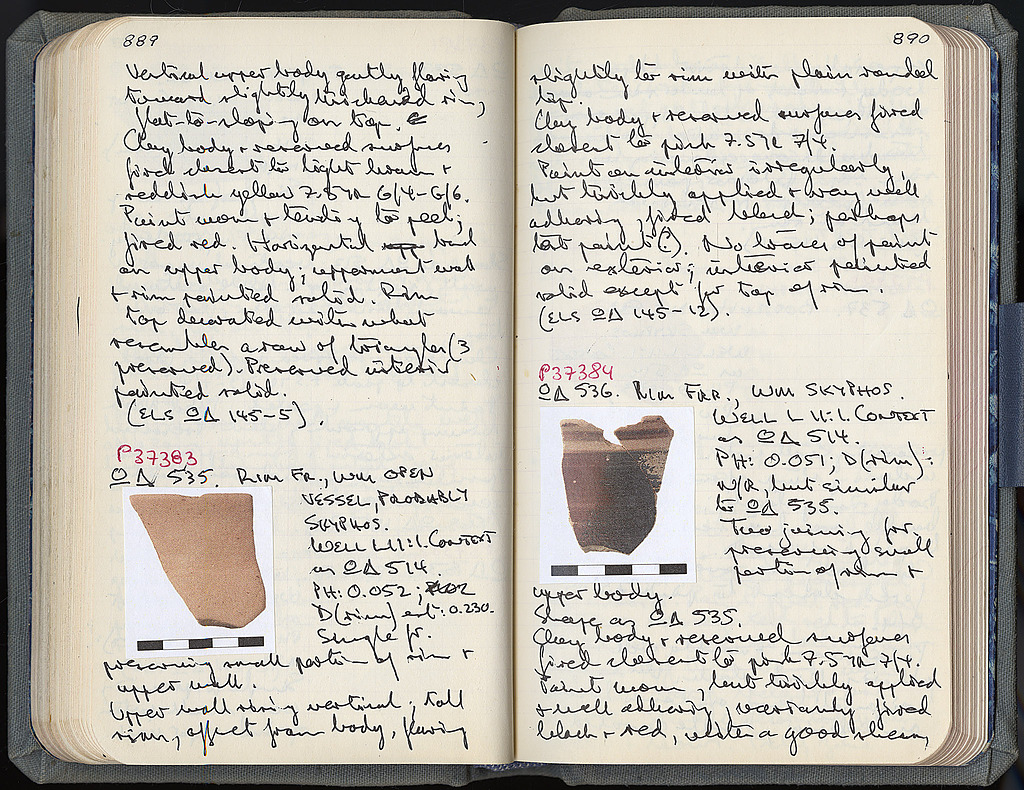 889
Vertical upper body gently flaring
toward slightly thickened rim,
flat-to-sloping on top.
Clay body + reserved surfaces
fired closest to light brown +
reddish yellow 7.5YR 6/4-6/6.
Paint worn + tending to peel;
fired red. Horizontal band
on upper body; uppermost wall
+ rim painted solid. Rim
top decorated with what
resembles a row of triangles (3
preserved). Preserved interior
painted solid.
(ELS ΟΔ 145-5).
P37383
ΟΔ 535. RIM FR., WM OPEN
VESSEL, PROBABLY
SKYPHOS.
WELL L 11:1. CONTEXT
as ΟΔ 514.
PH: 0.052;
D(rim) est: 0.230.
Single fr.
preserving small portion of rim +
upper wall.
Upper wall rising vertical; tall
rim, offset from body, flaring
890
slightly to rim with plain rounded
lip.
Clay body + reserved surfaces fired
closest to pink 7.5YR 7/4.
Paint on interior irregularly,
but thickly applied + very well
adhering, fired black; perhaps
not paint (?). No traces of paint
on exterior; interior painted
solid except for top of rim.
(ELS ΟΔ 145-12).
P37384
ΟΔ 536. RIM FRR., WM SKYPHOS.
WELL L 11:1. CONTEXT
as ΟΔ 514.
PH: 0.051; D(rim):
N/R, but similar
to ΟΔ 535.
Two joining frr.
preserving small
portion of rim +
upper body.
Shape as ΟΔ 535.
Clay body + reserved surfaces
fired closest to pink 7.5YR 7/4.
Paint worn, but thickly applied
+ well adhering, variously fired
black + red, with a good sheen,